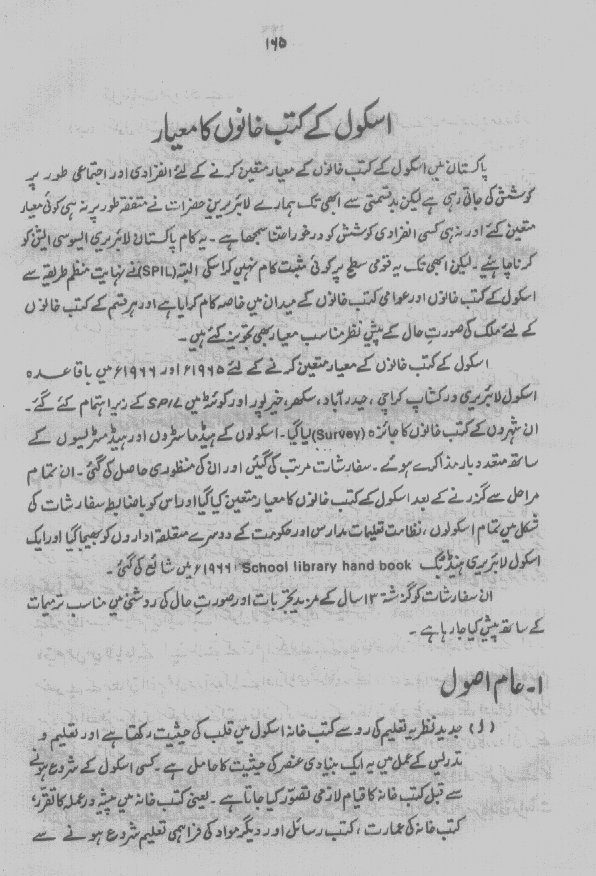 ۱۶۵
اسکول کے کتب خانوں کا معیار
پاکستان میں اسکول کے کتب خانوں کے معیار متعین کرنے کے لئے انفرادی اور اجتماعی طور پر
کوشش کی جاتی رہی ہے لیکن بدقسمتی سے ابھی تک ہمارے لائبریرین حضرات نے متفقہ طور پر نہ ہی کوئی معیار
متعین کئے اور نہ ہی کسی انفرادی کوشش کو درخور اعتنا سمجھا ہے ۔ یہ کام پاکستان لائبریری ایسوسی ایشن کو
کرنا چاہئیے ۔ لیکن ابھی تک یہ قومی سطح پر کوئی مثبت کام نہیں کر سکی البتہ (SPIL) نے نہایت منظم طریقہ سے
اسکول کے کتب خانوں اور عوامی کتب خانوں کے میدان میں خاصہ کام کرایا ہے اور ہر قسم کے کتب خانوں
کے لئے ملک کی صورت حال کے پیش نظر مناسب معیار بھی تجویز کئے ہیں ۔
اسکول کے کتب خانوں کے معیار متعین کرنے کے لئے ۱۹۶۵ء اور ۱۹۶۶ء میں باقاعدہ
اسکول لائبریری ورکشاپ کراچی ، حیدرآباد ، سکھر، خیرپور اور کوئٹہ میں SPIL کے زیر اہتمام کئے گئے ۔
ان شہروں کے کتب خانوں کا جائزہ (Survey) لیا گیا ۔ اسکولوں کے ہیڈ ماسٹروں اور ہیڈ مسٹریسوں کے
ساتھ متعدد بار مذاکرے ہوئے ۔ سفارشات مرتب کی گئیں اور ان کی منظوری حاصل کی گئی ۔ ان تمام
مراحل سے گذرنے کے بعد اسکول کے کتب خانوں کا معیار متعین کیا گیا اور اس کو باضابطہ سفارشات کی
شکل میں تمام اسکولوں ، نظامت تعلیمات مدارس اور حکومت کے دوسرے متعلقہ اداروں کو بھیجا گیا اور ایک
اسکول لائبریری ہینڈ بک School library hand book ۱۹۶۶ء میں شائع کی گئی ۔
ان سفارشات کو گزشتہ ۱۳ سال کے مزید تجربات اور صورت حال کی روشنی میں مناسب ترمیمات
کے ساتھ پیش کیا جا رہا ہے ۔
۱ ۔ عام اصول
(ا) جدید نظریہ تعلیم کی رو سے کتب خانہ اسکول میں قلب کی حیثیت رکھتا ہے اور تعلیم و
تدریس کے عمل میں یہ ایک بنیادی عنصر کی حیثیت کا حامل ہے ۔ کسی اسکول کے شروع ہونے
سے قبل کتب خانہ کا قیام لازمی تصور کیا جاتا ہے ۔ یعنی کتب خانہ میں پیشہ ور عملہ کا تقرر،
کتب خانہ کی عمارت ، کتب رسائل اور دیگر مواد کی فراہمی تعلیم شروع ہونے سے